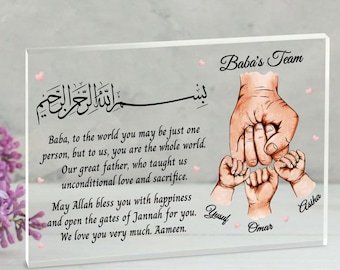 بسم الله الرحمن الرحيم
Baba's Team
Baba, to the world you may be just one
person, but to us, you are the whole world.
Our great father, who taught us
unconditional love and sacrifice.
May Allah bless you with happiness
and open the gates of Jannah for you.
We love you very much. Aameen.
Yusuf
Omar
Asiba